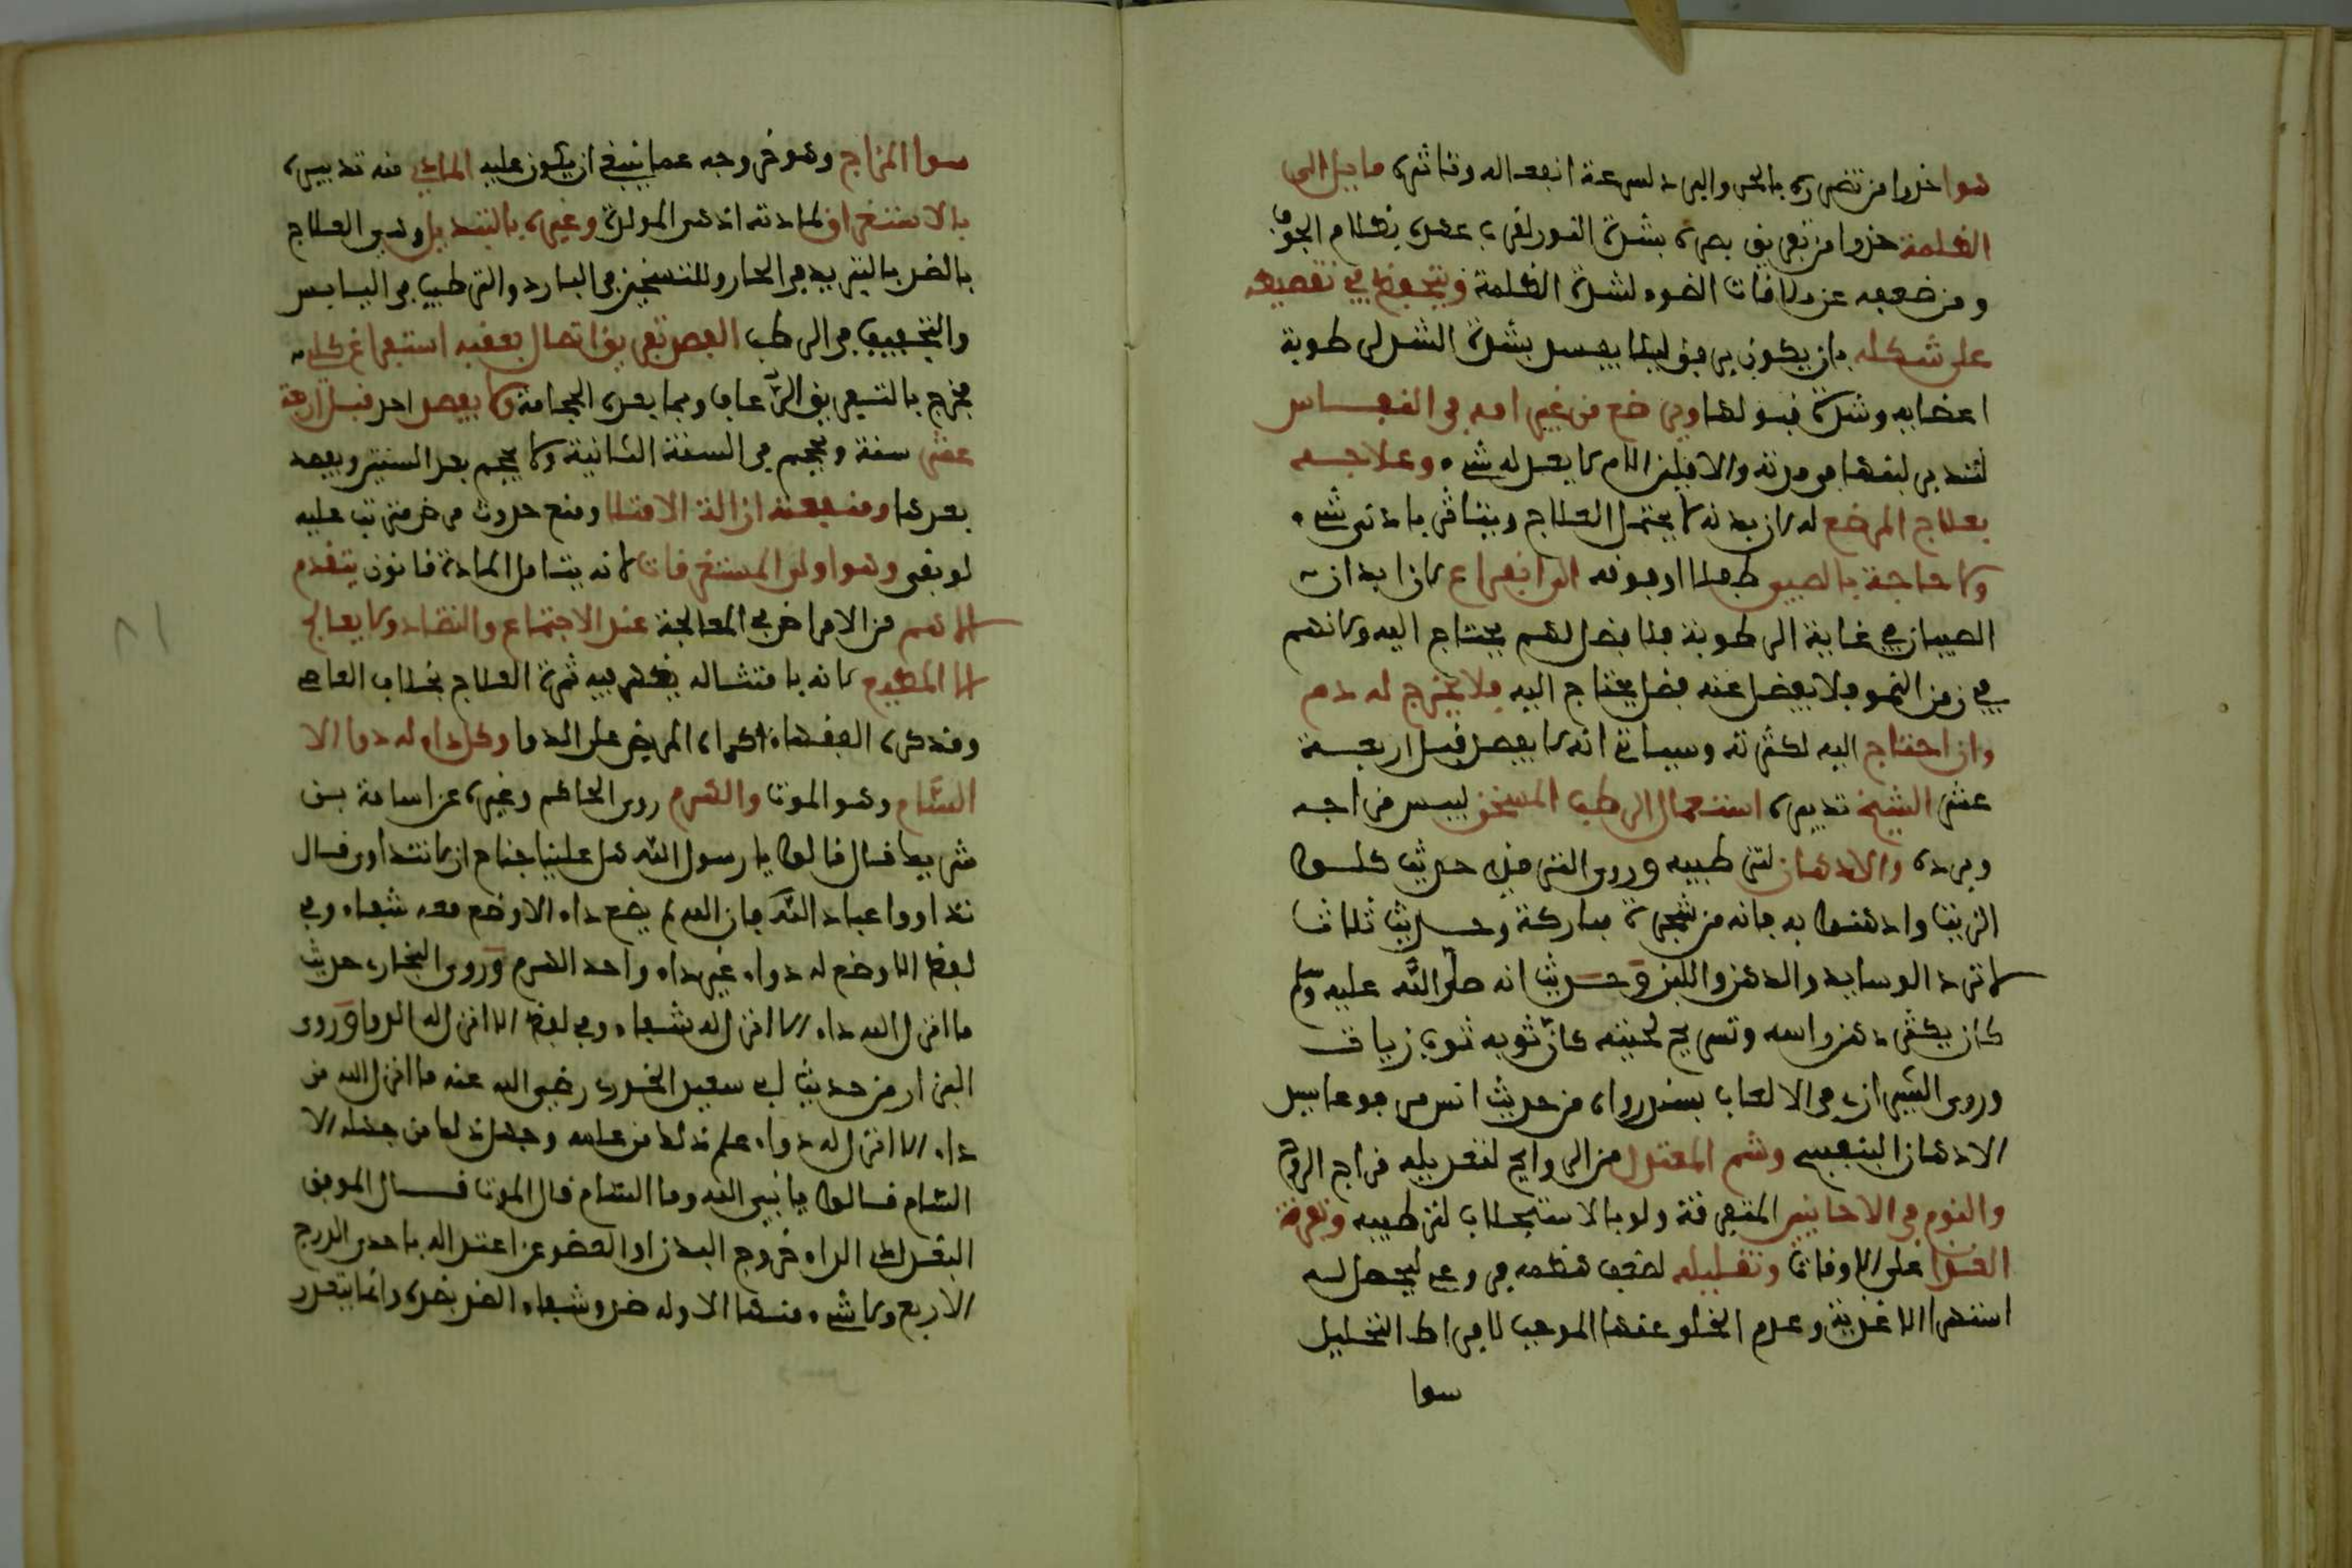 هوا خروا من تضرره بالحر والبرد لسرعة انفعاله وتاثره مايل الى
الظلمة حذرا من تفريق بصره بشدة النور لقرب عهده بظلام الجوف
ومن ضعفه عن ملاقات الضوء لشدة الظلمة ويتحفظ في تقميطه
على شكله بان يكون برفق ليلا يفسد بشدة الشد لرطوبة
اعضايه وشدة قبولها ويرضع من غير امه في النفاس
لتدبير لبنها من مدته والا فلبن الام لا يعدله شيء وعلاجه
بعلاج المرضع له لان بدنه لا يحتمل العلاج ويتاثر بادنى شيء
ولا حاجة بالصبي طفلا او فوقه الى افراغ لان ابدان
الصبيان في غاية الرطوبة فلا فضل لهم يحتاج اليه ولانهم
في زمن النمو فلا يفضل عنه فضل يحتاج اليه فلا يخرج له دم
وان احتاج اليه لكثرته وسياتي انه لا يفصد قبل اربعة
عشر الشيخ تدبيره استعمال الرطب المسخن ليبس مزاجه
وبرده والادهان لترطيبه وروى الترمذي حديث كلوا
الزيت وادهنوا به فانه من شجرة مباركة وحديث ثلاث
لا ترد الوسايد والدهن واللبن وحديث انه صلى الله عليه وسلم
كان يكثر دهن راسه وتسريح لحيته كان ثوبه ثوب زيات
وروى الشيرازي في الالقاب بسند رواه من حديث انس مرفوعا سيد
الادهان البنفسج وشم المعتدل من الروايح لتعديله مزاج الروح
والنوم في الاحايين المتفرقة ولو بالاستجلاب لترطيبه وتفرقة
الغذا على الاوقات وتقليله لضعف هضمه في وعي ليحصل له
استمرا الاغذية وعدم الخلو عنها الموجب لافراط التحليل
سوا
سوا المزاج وهو خروجه عما ينبغي ان يكون عليه المادي منه تدبيره
بالاستفراغ لمادته اذ هي المولدة وغيره بالتبديل وهي العلاج
بالضد بالتبريد في الحار وللتسخين في البارد والترطيب في اليابس
والتجفيف في الرطب الفصد تفريق اتصال يعقبه استفراغ كلي
فخرج بالتفريق الرعاف وبما بعده الحجامة ولا يفصد احد قبل اربعة
عشر سنة ويحجم في السنة الثانية ولا يحجم بعد الستين ويفصد
بعدها ومنفعته ازالة الامتلا ومنع حدوث مرض مترتب عليه
لو بقي وهو اولى المستفرغات لانه يشامل المادة قانون يتقدم
الاهم من الامراض في المعالجة عند الاجتماع والتضاد ولا يعالج
الا المطيع لانه بامتثاله يظهر فيه ثمرة العلاج بخلاف العاصي
ومنه كره الفقهاء اكراه المريض على الدوا وكل داء له دوا الا
السام وهو الموت والهرم روى الحاكم وغيره عن اسامة بن
شريك قال قالوا يا رسول الله هل علينا جناح ان لا نتداوى قال
تداووا عباد الله فان الله لم يضع داء الا وضع معه شفاء وفي
لفظ الا وضع له دواء غير داء واحد الهرم وروى البخاري حديث
ما انزل الله داء الا انزل له شفاء وفي لفظ الا انزل له الدوا وروى
البزار من حديث ابي سعيد الخدري رضي الله عنه ما انزل الله من
داء الا انزل له دواء علم ذلك من علمه وجهل ذلك من جهله الا
السام قالوا يا نبي الله وما السام قال الموت قال الموفق
البغدادي الداء خروج البدن او العضو عن اعتداله باحدى الدرج
الاربع ولا شيء منها الا وله ضد وشفاء الضد بضده وانما يتعذر